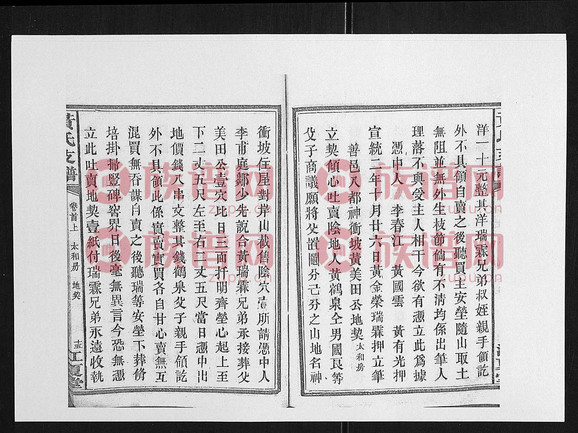 洋一十元整其洋瑞霖兄弟叔姪親手領訖
外不具領自賣之後聽買主安塋隨山取土
無阻並無外生枝節倘有不清均係出筆人
理落不與受主人相干今欲有憑立此爲據
憑中人 李春江 黃國雲 黃有光押
宣統二年十月廿六日黃金榮瑞霖押立筆
善邑八都神衝坡黃美田公地契 太和房
立契傾心吐賣陰地契人黃鶴泉仝男國艮等
父子商議願將父置鬮分己分之山地名神
衝坡住屋對岸山截售陰穴 所請憑中人
李甫庭鄒少先說合黃瑞霖兄弟承接葬父
美田公壹穴比日三面扦明齊塋心起上至
下二丈五尺左至右二丈五尺當日憑中出
地價錢八串文整其錢鶴泉父子親手領訖
外不具領此係實賣實買各自甘心情愿並
混買無吞謀自賣之後聽瑞等安塋下葬修
培掛掃豎碑窖界日後毫無異言今恐無憑
立此吐賣地契壹紙付瑞霖兄弟永遠收執
黃氏支譜 卷首上 太和房 地契 十五 江夏堂
族譜网
族譜网
zupu.cn